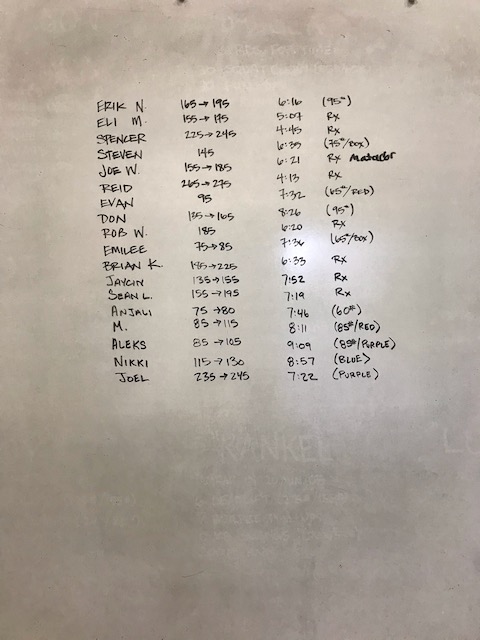 ERIK N. 165→195 6:16 (95#)
ELI M. 155→175 5:07 Rx
SPENCER 225→245 4:45 Rx
STEVEN 145 6:35 (75#/BOX)
JOE W. 155→185 6:21 Rx Matador
REID 265→275 4:13 Rx
EVAN 95 7:32 (65#/RED)
DON 135→165 8:26 (95#)
ROB W. 185 6:20 Rx
EMILEE 75→85 7:36 (65#/BOX)
BRIAN K. 185→225 6:33 Rx
JAYCIN 135→155 7:52 Rx
SEAN L. 155→195 7:19 Rx
ANJALI 75→80 7:46 (60#)
M. 85→115 8:11 (85#/RED)
ALEKS 85→105 9:09 (85#/PURPLE)
NIKKI 115→130 8:57 (BLUE)
JOEL 235→245 7:22 (PURPLE)
"RANKEL"